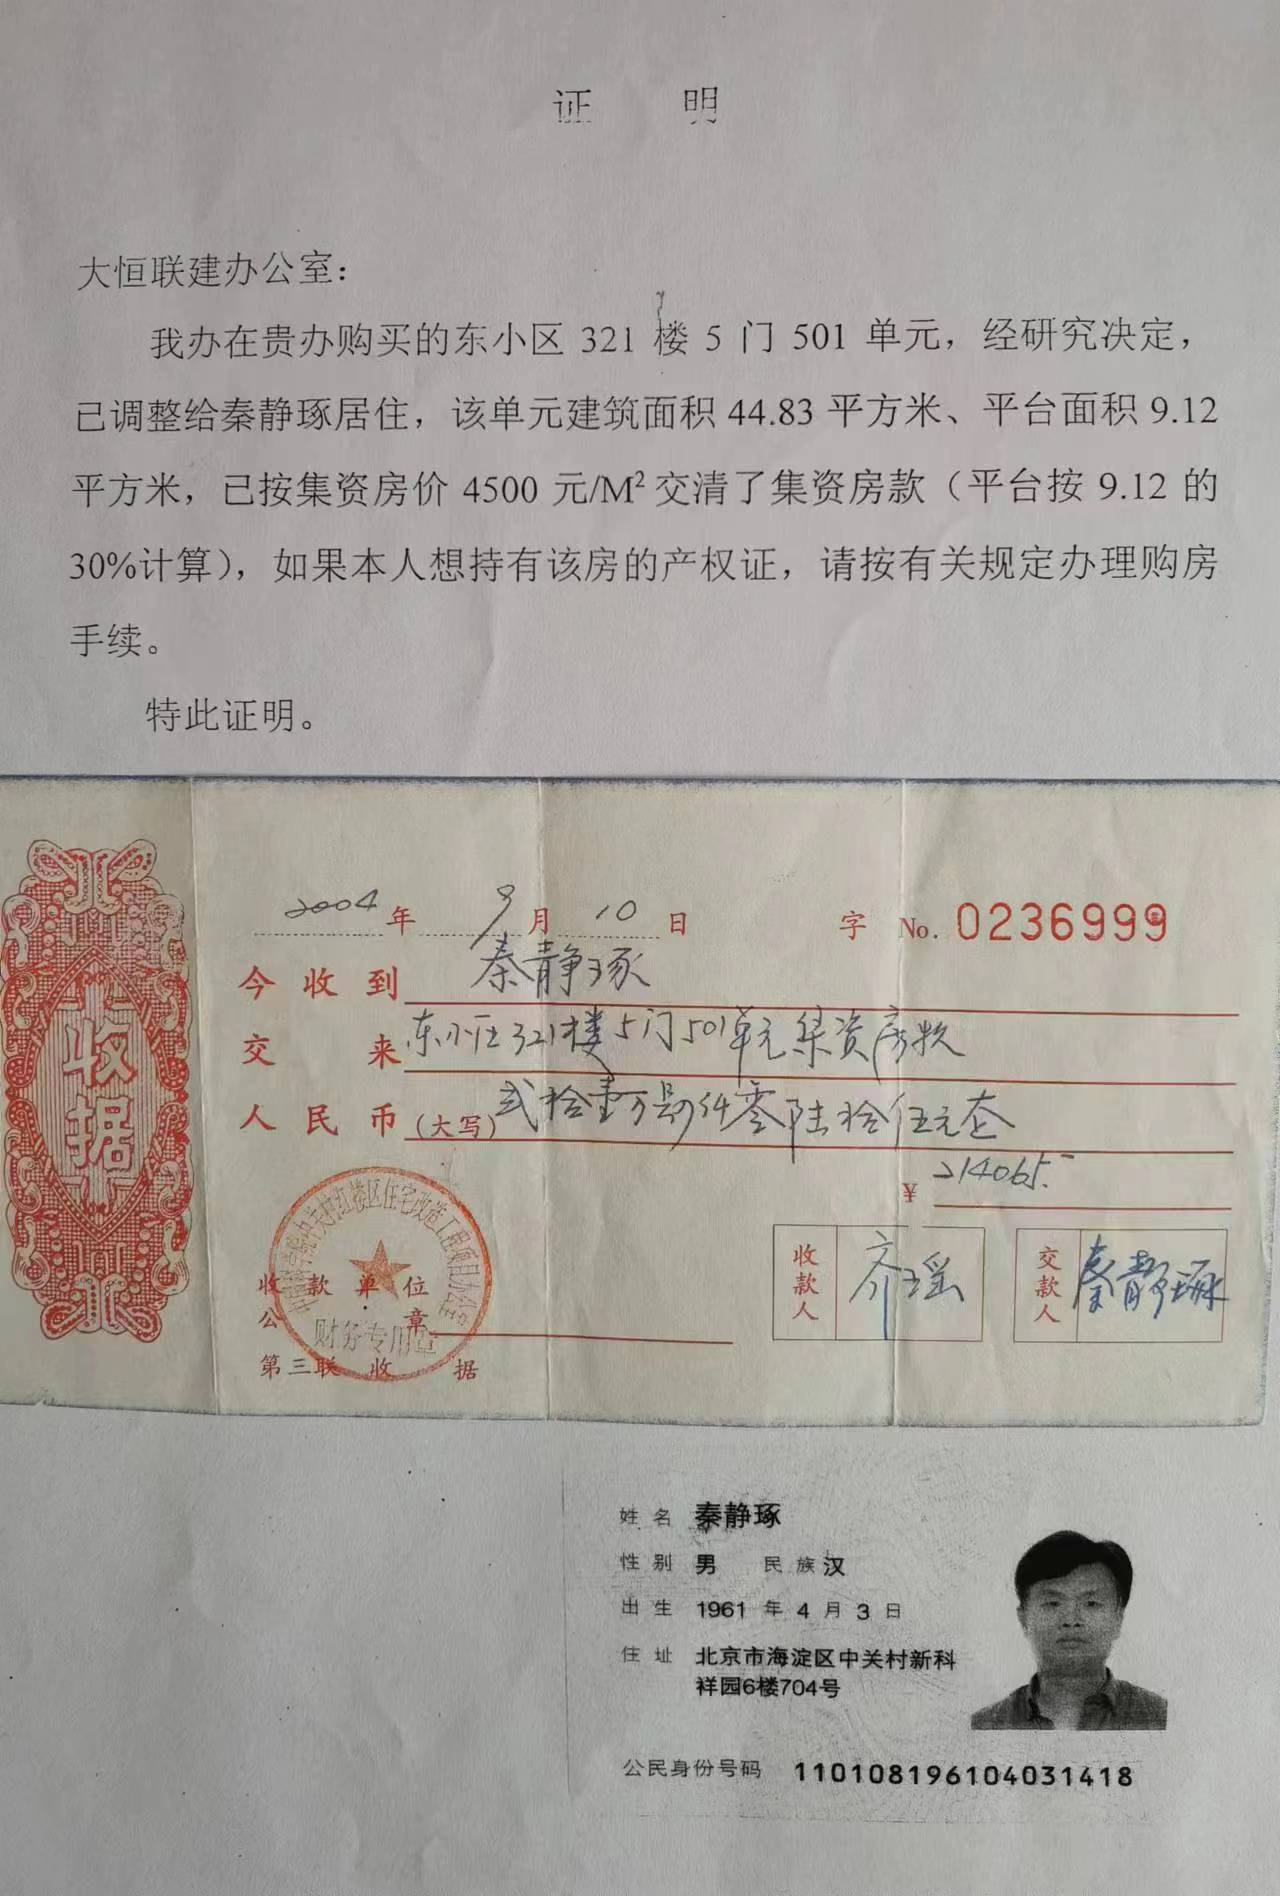 证 明
大恒联建办公室：
我办在贵办购买的东小区 321 楼 5 门 501 单元，经研究决定，
已调整给秦静琢居住，该单元建筑面积 44.83 平方米、平台面积 9.12
平方米，已按集资房价 4500 元/M²交清了集资房款（平台按 9.12 的
30%计算），如果本人想持有该房的产权证，请按有关规定办理购房
手续。
特此证明。
收据
2004 年 9 月 10 日 字 No. 0236999
今收到 秦静琢
交来 东小区321楼5门501单元集资房款
人民币（大写） 贰拾壹万肆仟零陆拾伍元
¥ 214065.
中关村红楼区住宅改造工程项目办公室
财务专用章
收款单位
公章
收款人 齐瑶
交款人 秦静琢
第三联 收据
姓名 秦静琢
性别 男 民族 汉
出生 1961 年 4 月 3 日
住址 北京市海淀区中关村新科
祥园6楼704号
公民身份号码 110108196104031418